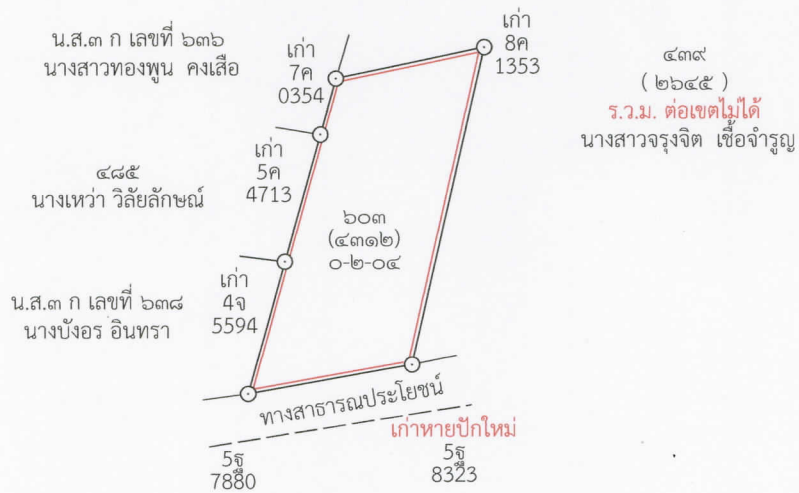 น.ส.๓ ก เลขที่ ๖๓๖
นางสาวทองพูน คงเสือ
เก่า
7ค
0354
เก่า
8ค
1353
๔๓๙
( ๒๖๔๕ )
ร.ว.ม. ต่อเขตไม่ได้
นางสาวจรุงจิต เชื้อจำรูญ
๔๘๕
นางเหว่า วิลัยลักษณ์
เก่า
5ค
4713
๖๐๓
(๔๓๑๒)
๐-๒-๐๔
น.ส.๓ ก เลขที่ ๖๓๘
นางบังอร อินทรา
เก่า
4จ
5594
ทางสาธารณประโยชน์
เก่าหายปักใหม่
5ฐ
7880
5ฐ
8323